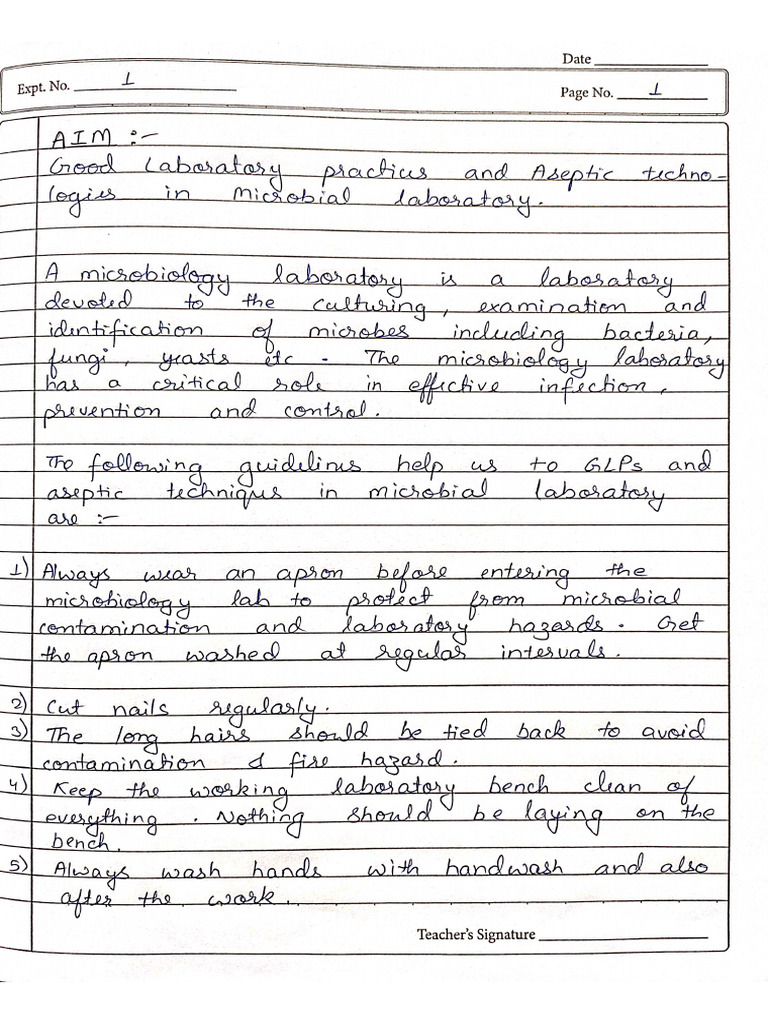 Date
Expt. No. 1
Page No. 1
AIM :-
Good Laboratory practices and Aseptic techno-
logies in microbial laboratory.
A microbiology laboratory is a laboratory
devoted to the culturing, examination and
identification of microbes including bacteria,
fungi, yeasts etc. The microbiology laboratory
has a critical role in effective infection,
prevention and control.
The following guidelines help us to GLPs and
aseptic techniques in microbial laboratory
are :-
1) Always wear an apron before entering the
microbiology lab to protect from microbial
contamination and laboratory hazards. Get
the apron washed at regular intervals.
2) Cut nails regularly.
3) The long hairs should be tied back to avoid
contamination & fire hazard.
4) Keep the working laboratory bench clean of
everything. Nothing should be laying on the
bench.
5) Always wash hands with handwash and also
after the work.
Teacher's Signature